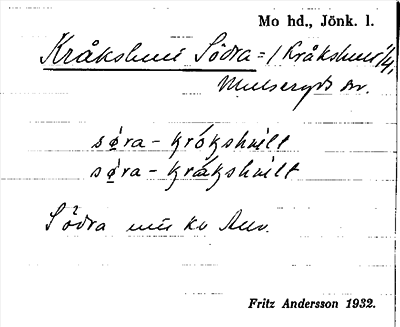 Mo hd., Jönk. l.
Kråkshult Södra = 1 Kråkshult 1/4,
Mulseryds sn.
sø̣ra - krókshvilt
sø̣ra - krákshvilt
Södra
Fritz Andersson 1932.